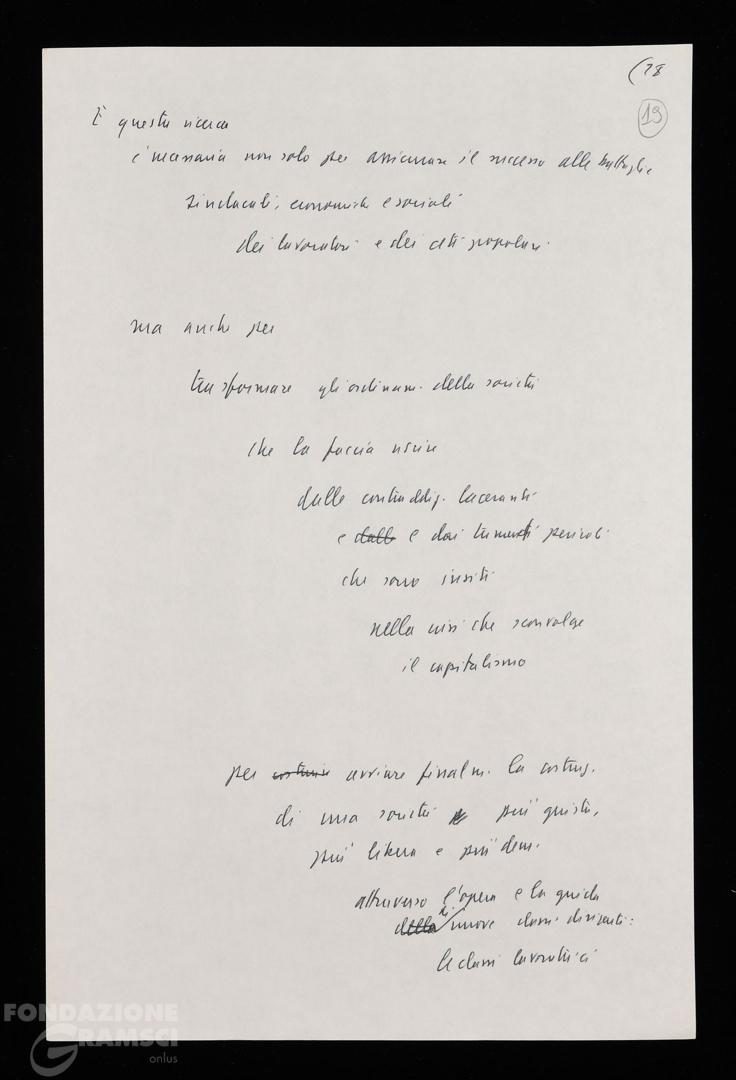 (78
19
E questa ricerca
è necessaria non solo per assicurare il successo alle battaglie
sindacali, economiche e sociali
dei lavoratori e dei ceti popolari
ma anche per
trasformare gli ordinam. della società
che la faccia uscire
dalle contraddiz. laceranti
e dalle e dai tremendi pericoli
che sono insiti
nella crisi che sconvolge
il capitalismo
per costruire avviare finalm. la costruz.
di una società più giusta,
più libera e più dem.
attraverso l'opera e la guida
della di nuove classi dirigenti:
le classi lavoratrici
FONDAZIONE
GRAMSCI
onlus